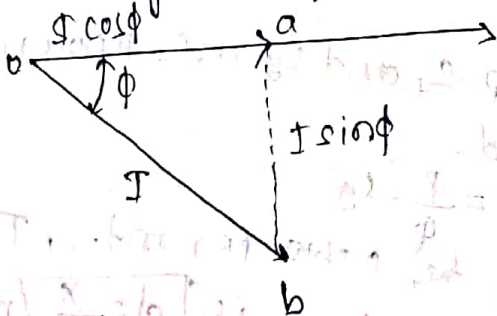 I cosϕ
a
o
ϕ
I sinϕ
I
b